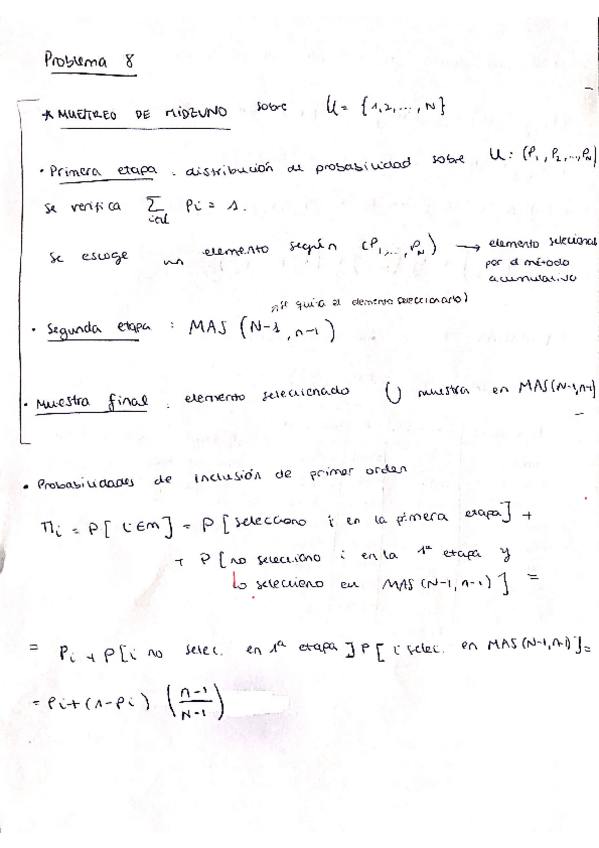 Problema 8
* MUESTREO DE MIDZUNO sobre U = {1,2,...,N}
• Primera etapa. distribución de probabilidad sobre U: (P₁, P₂, ..., Pₙ)
se verifica Σ i∈U Pi = 1.
se escoge un elemento según (P₁, ..., P_N) → elemento seleccionado
por el método
acumulativo
(se quita el elemento seleccionado)
• Segunda etapa : MAS (N-1, n-1)
• Muestra final. elemento seleccionado ∪ muestra en MAS(N-1,n-1)
• Probabilidades de inclusión de primer orden
Πi = P[i∈m] = P[selecciono i en la primera etapa] +
+ P[no selecciono i en la 1ª etapa y
lo selecciono en MAS(N-1, n-1)] =
= Pi + P[i no selec. en 1ª etapa] P[i selec. en MAS(N-1,n-1)] =
= Pi + (1-Pi) (n-1/N-1)